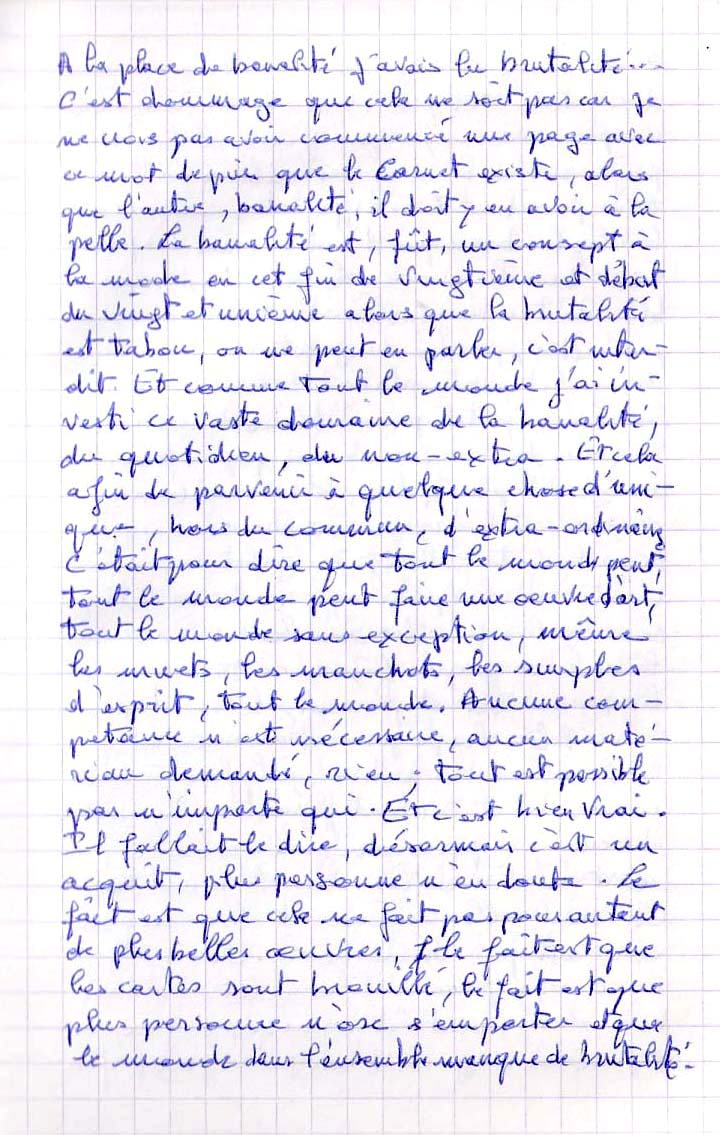 A la place de banalité j'avais lu brutalité...
C'est dommage que cela ne soit pas car je
ne crois pas avoir commencé une page avec
ce mot depuis que le Carnet existe, alors
que l'autre, banalité, il doit y en avoir à la
pelle. La banalité est, fût, un consept à
la mode en cet fin de vingtième et début
du vingt et unième alors que la brutalité
est tabou, on ne peut en parler, c'est inter-
dit. Et comme tout le monde j'ai in-
vesti ce vaste domaine de la banalité,
du quotidien, du non-extra. Et cela
afin de parvenir à quelque chose d'uni-
que, hors du commun, d'extra-ordinaire
C'était pour dire que tout le monde peut,
tout le monde peut faire une oeuvre d'art,
tout le monde sans exception, même
les muets, les manchots, les simples
d'esprit, tout le monde. Aucune com-
pétance n'est nécessaire, aucun maté-
riau demandé, rien; tout est possible
par n'importe qui. Et c'est bien vrai.
Il fallait le dire, désormais c'est un
acquit, plus personne n'en doute. Le
fait est que cela ne fait pas pour autant
de plus belles oeuvres, le fait est que
les cartes sont brouillé, le fait est que
plus personne n'ose s'emporter et que
le monde dans l'ensemble manque de brutalité.